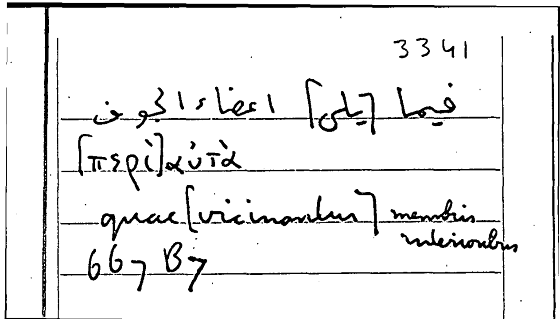 3341
فيما [يلي] اعضاء الجوف
[περὶ] αὐτὰ
quae [vicinantur] membris
interioribus
667 B7